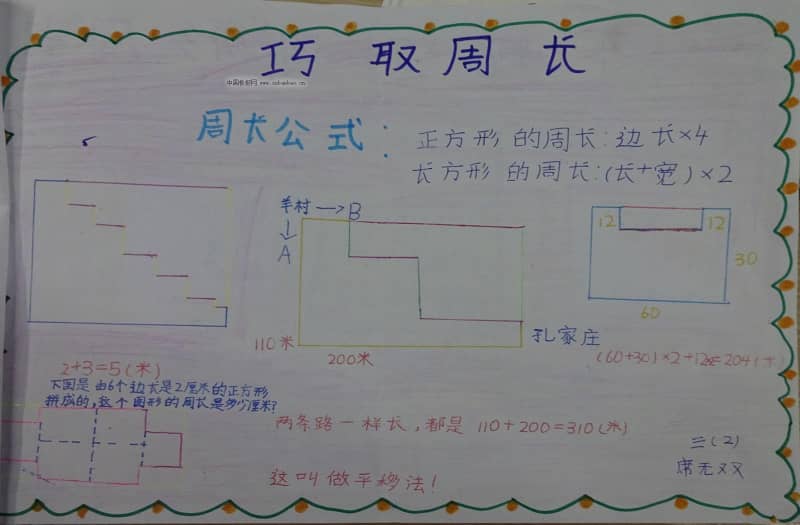 巧取周长
中国板报网 www.nubanbao.cn
周长公式:
正方形的周长:边长×4
长方形的周长:(长+宽)×2
羊村→B
↓
A
110米
200米
孔家庄
12
12
30
60
2+3=5(米)
(60+30)×2+12×2=204(
下图是由6个边长是2厘米的正方形
拼成的,这个图形的周长是多少厘米?
两条路一样长,都是110+200=310(米)
这叫做平移法!
三(2)
席无双